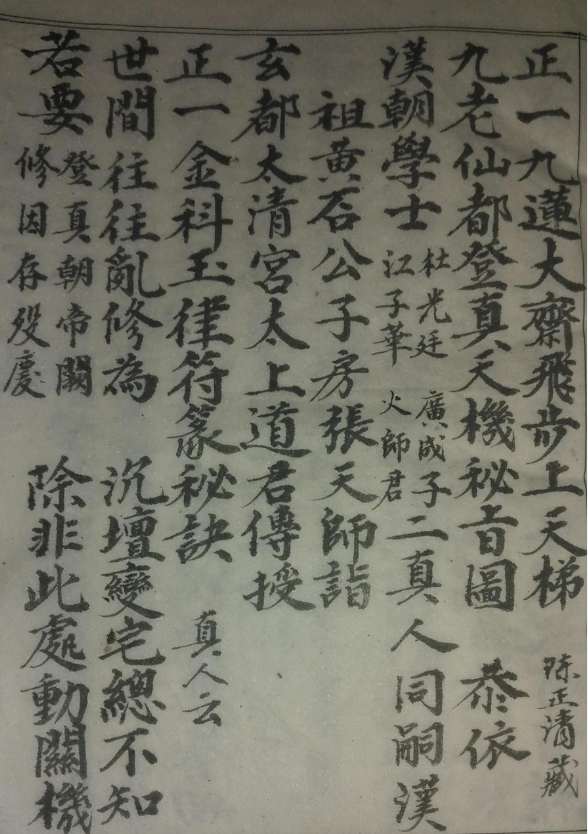 正一九蓮大齋飛步上天梯
陈正清藏
九老仙都登真天機秘旨圖 恭依
漢朝學士 杜光廷 廣成子 江子華 火師君 二真人同嗣漢
祖黃石公子房張天師詣
玄都太清宮太上道君傳授
正一金科玉律符篆秘訣 真人云
世間往往亂修為 沉壇變宅總不知
若要登真朝帝闕 修因存歿慶 除非此處動關機